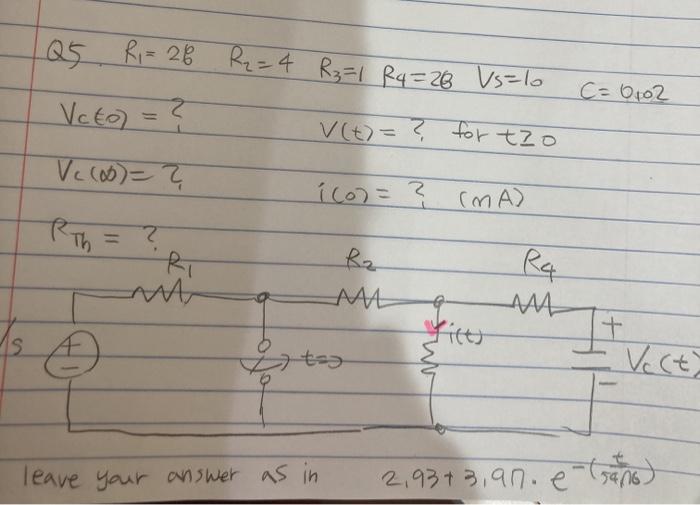 Q5. R1=28 R2=4 R3=1 R4=28 Vs=10 C=0,02
Vc(0) = ? V(t) = ? for t≥0
Vc(∞)= ? i(0) = ? (mA)
RTh = ?
R1 R2 R4
+ i(t) +
s - t=0 Vc(t)
-
leave your answer as in 2,93+3,97. e-(t/